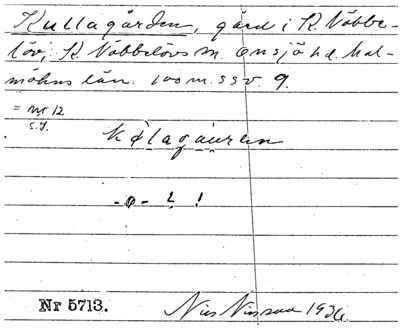 Kullagården, gård i K. Nöbbe-
löv; K. Nöbbelövs sn. Onsjö hd. Mal-
möhus län. 100 m. SSV. 9.
= Nr 12
s. 7.
kølagåuren
-ø- l !
Nr 5713.
Nils Nilsson 1936.